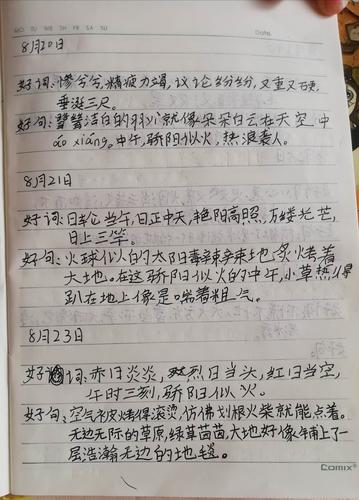 MO TU WE TH FR SA SU
Date.
8月20日
好词:惨兮兮,精疲力竭,议论纷纷,又重又硬,
垂涎三尺。
好句:
洁白的羽
就像朵朵白云在天空中
áo xiáng。中午,骄阳似火,热浪袭人。
8月21日
好词:日
当午,日正中天,艳阳高照,万缕光芒,
日上三竿。
好句:火球似的太阳毒辣辣地炙烤着
大地。在这骄阳似火的中午,小草热得
趴在地上像是喘着粗气。
8月23日
好词:赤日炎炎,烈日当头,红日当空,
午时三刻,骄阳似火。
好句:空气被烤得滚烫,仿佛划根火柴就能点着。
无边无际的草原,绿草茵茵,大地好像铺上了一
层浩瀚无边的地毯。
Comix